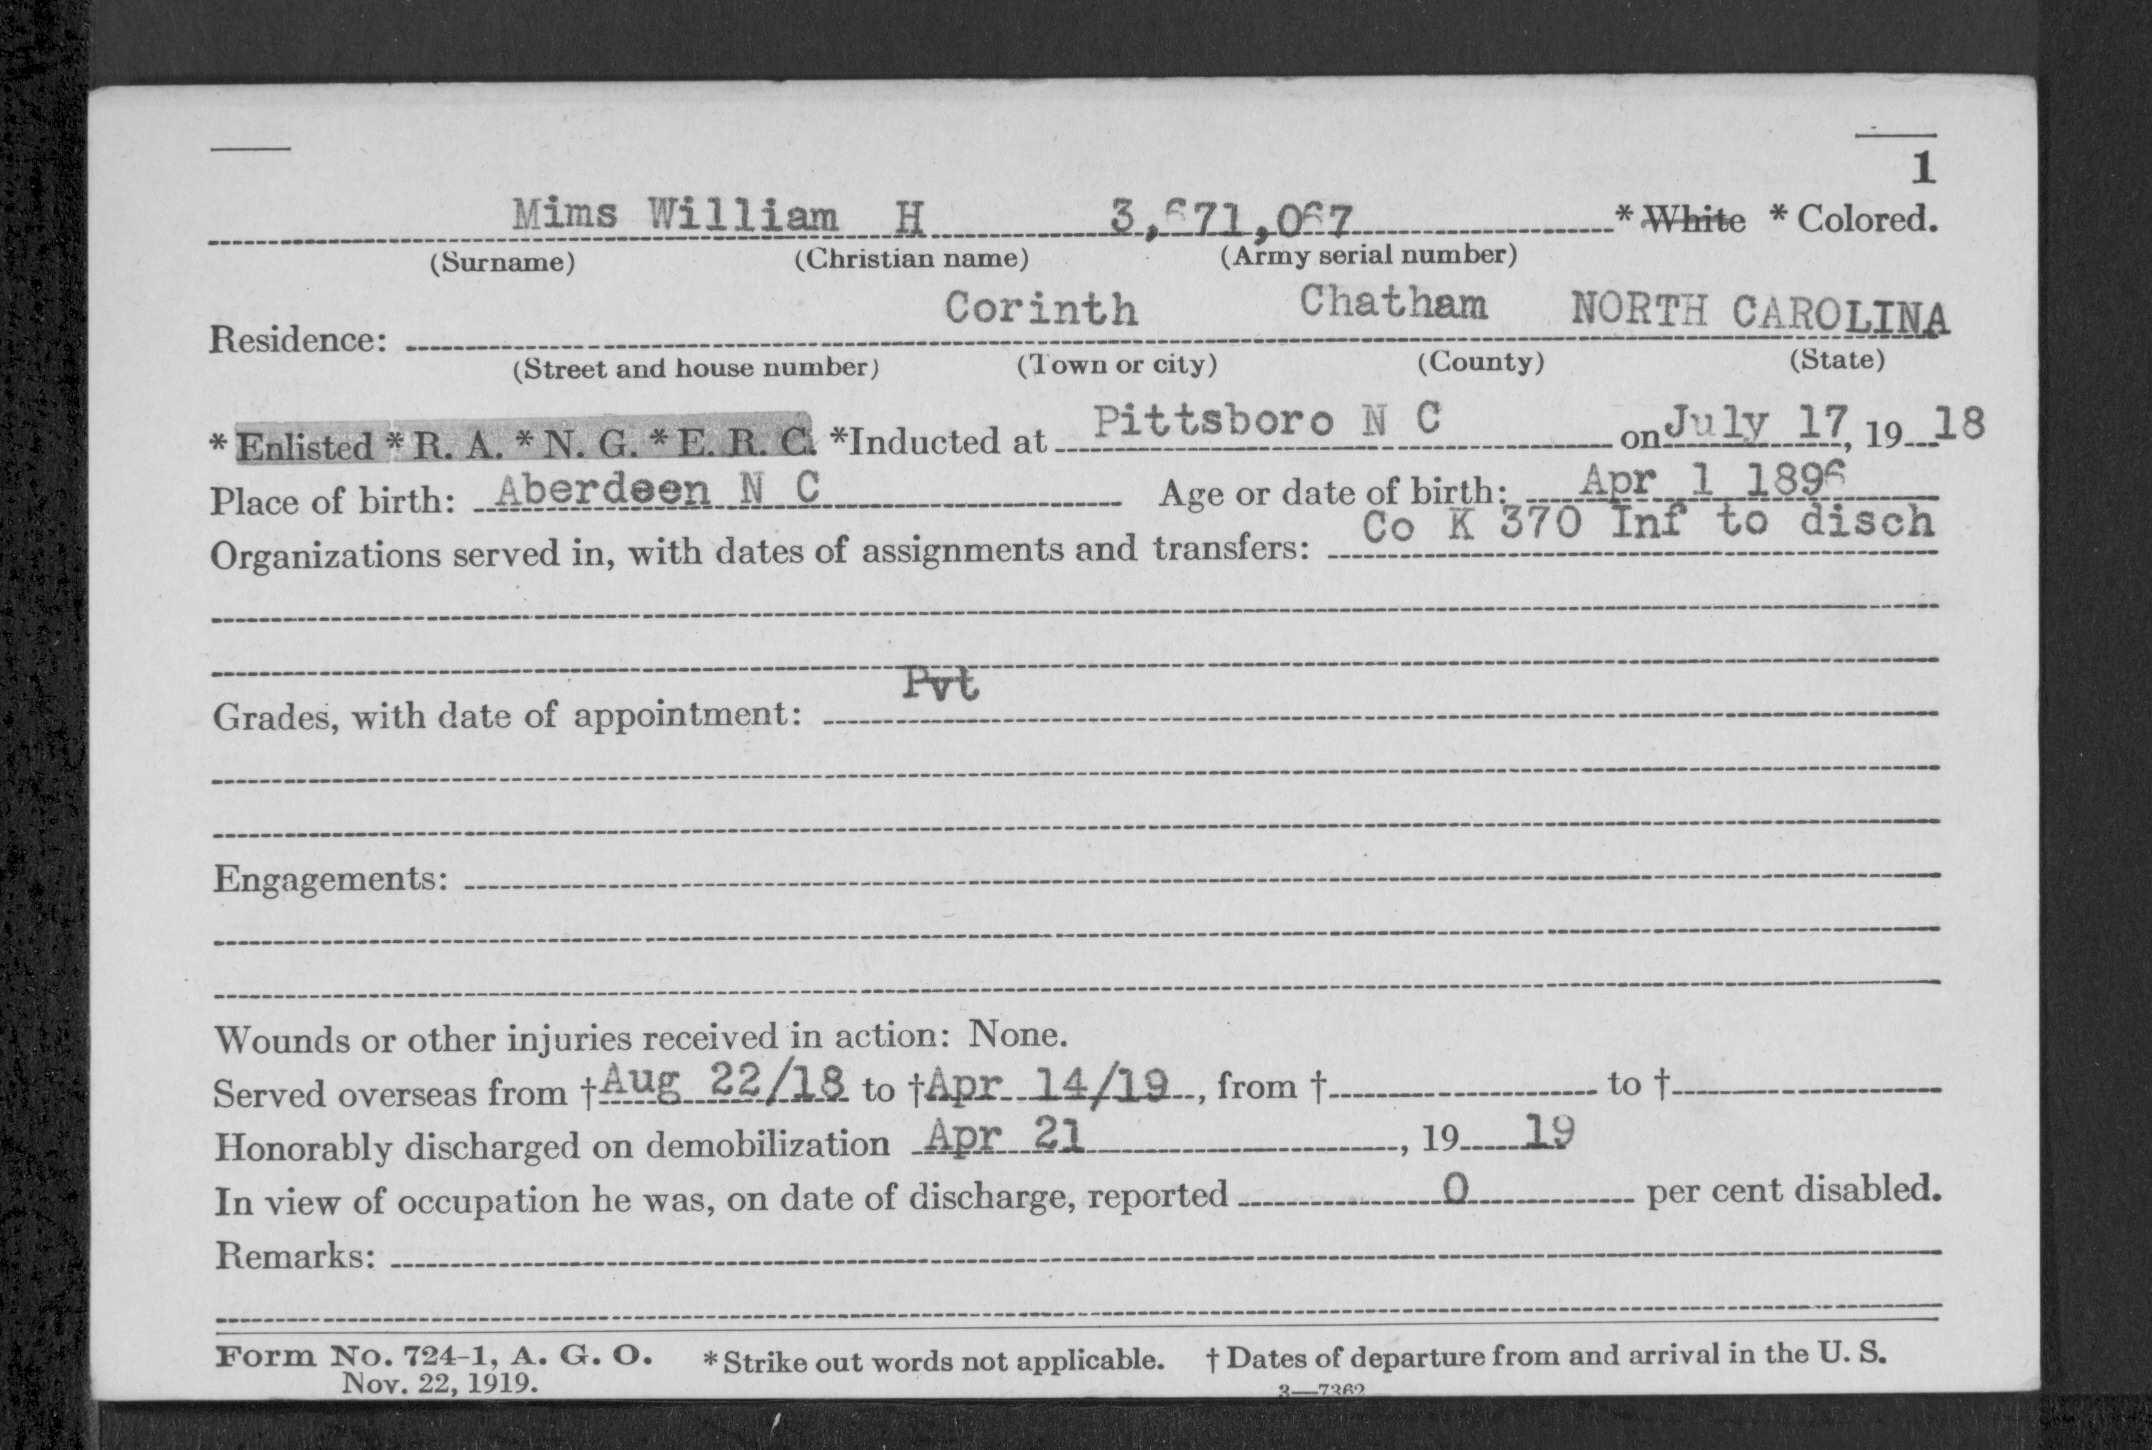 1
Mims William H 3,671,067 * White * Colored.
(Surname) (Christian name) (Army serial number)
Corinth Chatham NORTH CAROLINA
Residence:
(Street and house number) (Town or city) (County) (State)
* Enlisted * R. A. * N. G. * E. R. C. *Inducted at Pittsboro N C on July 17, 19 18
Place of birth: Aberdeen N C Age or date of birth: Apr 1 1896
Organizations served in, with dates of assignments and transfers: Co K 370 Inf to disch
Grades, with date of appointment: Pvt
Engagements:
Wounds or other injuries received in action: None.
Served overseas from † Aug 22/18 to † Apr 14/19, from † to †
Honorably discharged on demobilization Apr 21, 19 19
In view of occupation he was, on date of discharge, reported 0 per cent disabled.
Remarks:
Form No. 724-1, A. G. O. * Strike out words not applicable. † Dates of departure from and arrival in the U. S.
Nov. 22, 1919. 3—7362